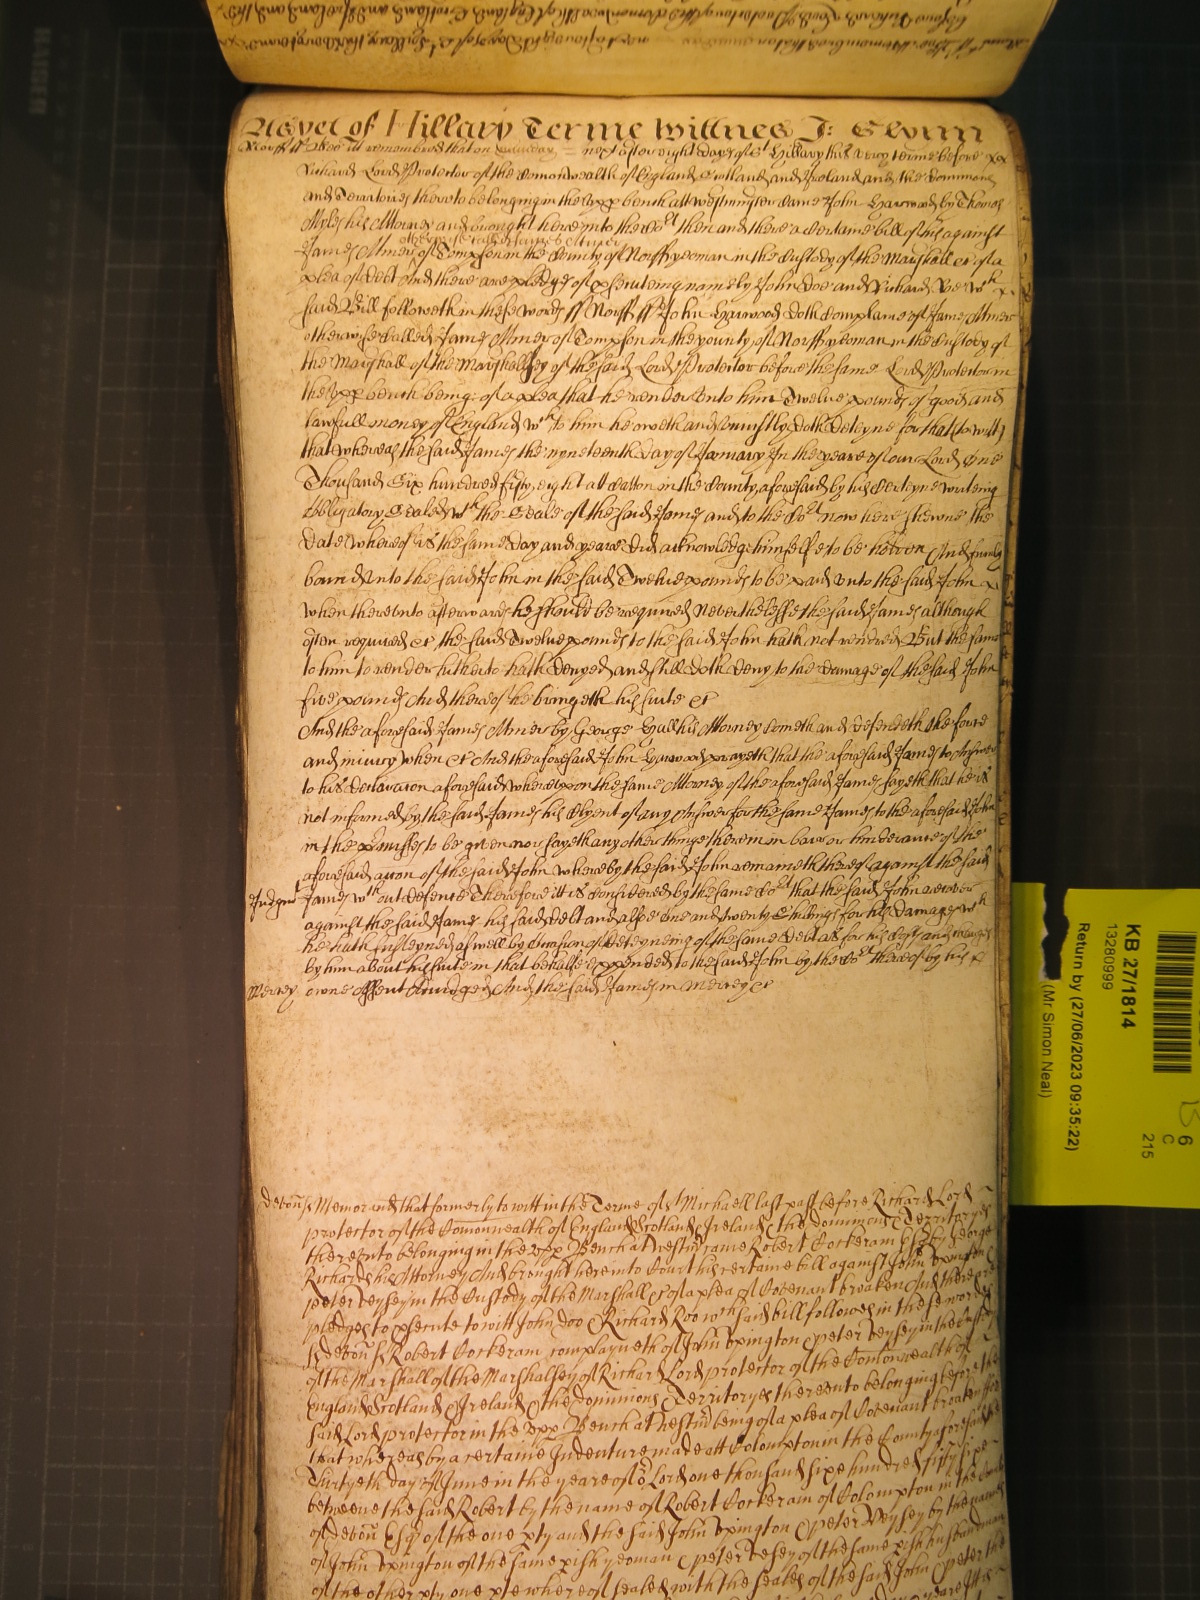 As yet of Hillary Terme Wittnes J: Glynn
Norff ss Bee itt remembred that on next after eight dayes of St Hillary this very terme before
Richard Lord Protector of the Comonwealth of England Scotland and Ireland and the Dominions
and Territories thereto belonging in the upp bench att Westminster came John Harwood by Thomas
Myles his Attorney and brought here into the Cot then and there a certaine bill of his against
otherwise called James Amier
James Amier of Tompson in the County of Norff yeoman in the Custody of the Marshall &c of a
plea of debt And there are pledges of psecuteing namely John Doe and Richard Roe wch
said Bill followeth in these words ss Norff ss John Harwood doth complaine of James Amier
otherwise called James Amier of Tompson in the county of Norff yeoman in the Custody of
the Marshall of the Marshallsey of the said Lord Protector before the same Lord Protector in
the upp bench being of a plea that he render unto him Twelve pounds of good and
lawfull money of England wch to him he oweth and uniustly doth deteyne for that (to witt)
that whereas the said James the nyneteenth day of January In the yeare of our Lord One
Thousand Six hundred fifty eight att in the County aforesaid by his certeyne writeing
Obligatory Sealed wth the Seale of the said James and to the Cot now here shewne the
date whereof is the same day and yeare did acknowledge himselfe to be holden And firmly
bound unto the said John in the said Twelve pounds to be paid unto the said John
when thereunto afterwards he should be required Neverthelesse the said James although
often required &c the said Twelve pounds to the said John hath not rendred But the same
to him to render hitherto hath denyed and still doth deny to the damage of the said John
five pounds And thereof he bringeth his suite &c
And the aforesaid James Amier by George Hall his Attorney cometh and defendeth the force
and iniury when &c And the aforesaid John Harwood prayeth that the aforesaid James to Answer
to his declaracon aforesaid whereupon the same Attorney of the aforesaid James sayeth that he is
not informed by the said James his Clyent of any Answer for the same James to the aforesaid John
in the pmisses to be given nor sayeth any other thinge therein in barr or hinderance of the
aforesaid accon of the said John whereby the said John remaineth thereof against the said
Judgmt James wth out defence Therefore itt is considered by the same Cot that the said John recover
against the said James his said debt and alsoe one and twenty shillings for his damages wch
he hath susteyned as well by Occasion of deteyneing of the same debt as for his Costs and charges
by him about his suite in that behalfe expended to the said John by the Cot thereof by his
Mercey owne Assent Adiudged And the said James in Mercey &c
Devon ss Memorand that formerly to witt in the Terme of St Michaell last past before Richard Lord
protector of the Comonwealth of England Scotland & Ireland & the dominions & Territoryes
thereunto belonging in the upp Bench at Westm came Robert Cockeram Esq by George
Richards his Attorney And brought here into Court his certaine bill against John Upington &
Peter Veysey in the Custody of the Marshall &c of a plea of Covenant broaken And there are
pledges to psecute to witt John Doo & Richard Roo wch said bill followes in these words
ss Devon ss Robert Cockeram complayneth of John Upington & Peter Veysey in the Custody
of the Marshall of the Marshalsey of Richard Lord protector of the Comonwealth of
England Scotland & Ireland & the dominions & Territoryes thereunto belonging before the
said Lord protector in the upp Bench at Westm being of a plea of Covenant broaken for
that whereas by a certaine Indenture made att Colompton in the County aforesaid the
Thirtyeth day of June in the yeare of or Lord one thousand sixe hundred fifty sixe
betweene the said Robert by the name of Robert Cockeram of Colompton in the County
of Devon Esqr of the one pty and the said John Upington & Peter Veysey by the names
of John Upington of the same pish yeoman & Peter Vesey of the same pish husbandman
of the other pty one pte whereof sealed with the seales of the said John & Peter the
KB 27/1814
13280999
Return by (27/06/2023 09:35:22)
(Mr Simon Neal)
6
C
215